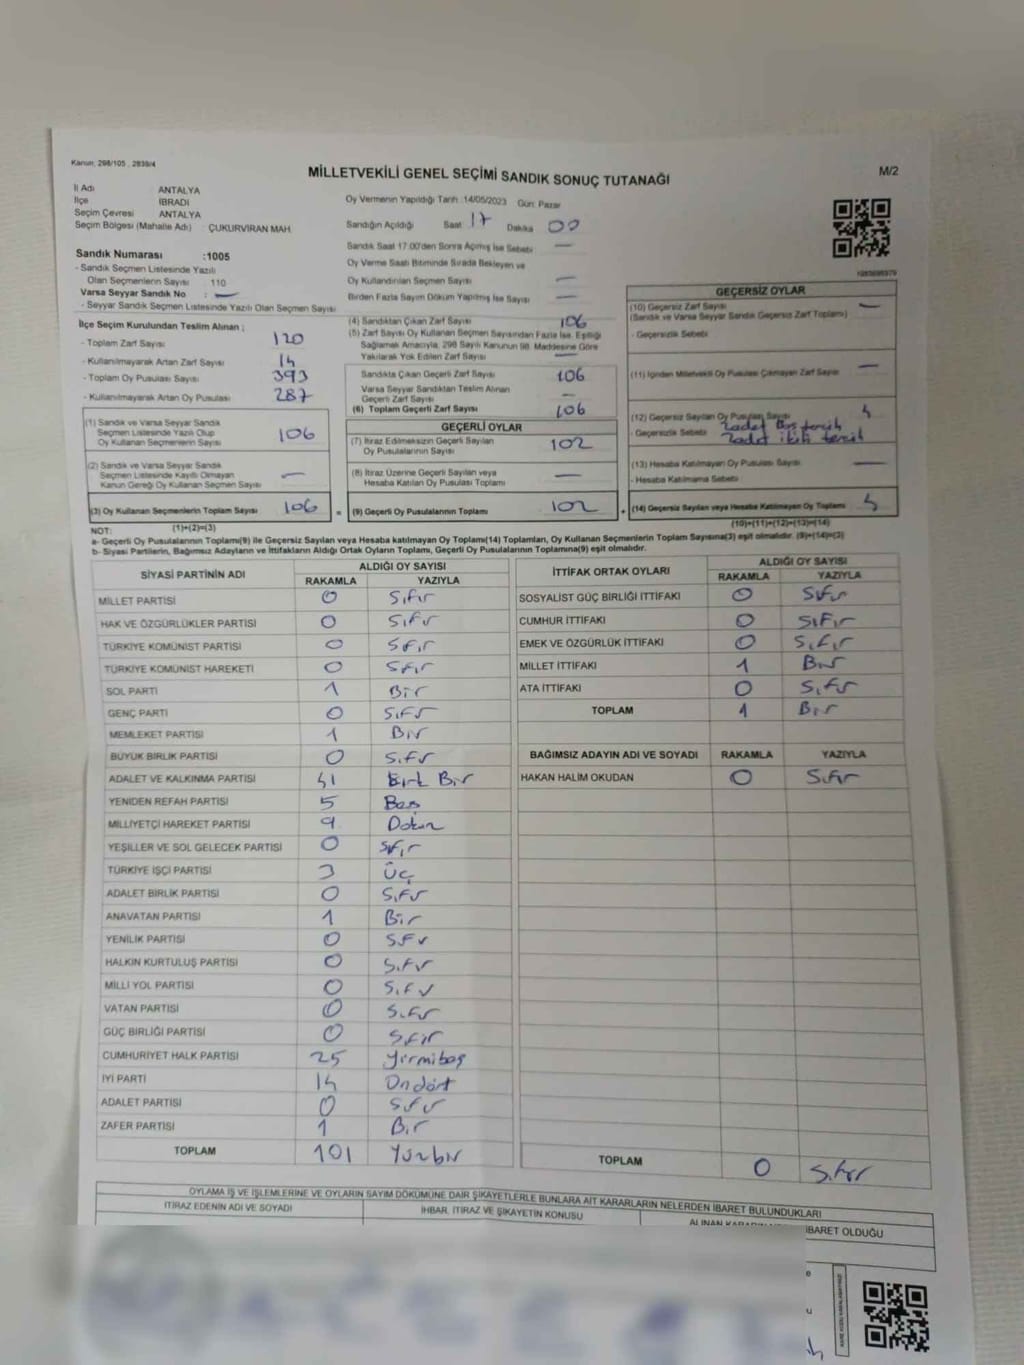 Kanun, 298/105 , 2839/4
MİLLETVEKİLİ GENEL SEÇİMİ SANDIK SONUÇ TUTANAĞI
M/2
İl Adı ANTALYA
İlçe İBRADI
Seçim Çevresi ANTALYA
Seçim Bölgesi (Mahalle Adı) ÇUKURVİRAN MAH.
Oy Vermenin Yapıldığı Tarih :14/05/2023 Gün: Pazar
Sandığın Açıldığı Saat 17 Dakika 00
Sandık Saat 17:00'den Sonra Açılmış İse Sebebi —
Oy Verme Saati Bitiminde Sırada Bekleyen ve
Oy Kullandırılan Seçmen Sayısı —
Birden Fazla Sayım Döküm Yapılmış İse Sayısı —
Sandık Numarası :1005
- Sandık Seçmen Listesinde Yazılı
Olan Seçmenlerin Sayısı : 110
Varsa Seyyar Sandık No : —
- Seyyar Sandık Seçmen Listesinde Yazılı Olan Seçmen Sayısı
İlçe Seçim Kurulundan Teslim Alınan ;
- Toplam Zarf Sayısı 120
- Kullanılmayarak Artan Zarf Sayısı 14
- Toplam Oy Pusulası Sayısı 393
- Kullanılmayarak Artan Oy Pusulası 287
(1) Sandık ve Varsa Seyyar Sandık
Seçmen Listesinde Yazılı Olup
Oy Kullanan Seçmenlerin Sayısı 106
(2) Sandık ve Varsa Seyyar Sandık
Seçmen Listesinde Kayıtlı Olmayan
Kanun Gereği Oy Kullanan Seçmen Sayısı —
(3) Oy Kullanan Seçmenlerin Toplam Sayısı 106
(1)+(2)=(3)
(4) Sandıktan Çıkan Zarf Sayısı 106
(5) Zarf Sayısı Oy Kullanan Seçmen Sayısından Fazla İse, Eşitliği
Sağlamak Amacıyla, 298 Sayılı Kanunun 98. Maddesine Göre
Yakılarak Yok Edilen Zarf Sayısı —
Sandıkta Çıkan Geçerli Zarf Sayısı 106
Varsa Seyyar Sandıktan Teslim Alınan
Geçerli Zarf Sayısı —
(6) Toplam Geçerli Zarf Sayısı 106
GEÇERLİ OYLAR
(7) İtiraz Edilmeksizin Geçerli Sayılan
Oy Pusulalarının Sayısı 102
(8) İtiraz Üzerine Geçerli Sayılan veya
Hesaba Katılan Oy Pusulası Toplamı —
= (9) Geçerli Oy Pusulalarının Toplamı 102 +
GEÇERSİZ OYLAR
(10) Geçersiz Zarf Sayısı —
(Sandık ve Varsa Seyyar Sandık Geçersiz Zarf Toplamı)
- Geçersizlik Sebebi
(11) İçinden Milletvekili Oy Pusulası Çıkmayan Zarf Sayısı —
(12) Geçersiz Sayılan Oy Pusulası Sayısı 4
- Geçersizlik Sebebi 2 adet Boş tercih
2 adet ikili tercih
(13) Hesaba Katılmayan Oy Pusulası Sayısı —
- Hesaba Katılmama Sebebi
(14) Geçersiz Sayılan veya Hesaba Katılmayan Oy Toplamı 4
(10)+(11)+(12)+(13)=(14)
NOT:
a- Geçerli Oy Pusulalarının Toplamı(9) ile Geçersiz Sayılan veya Hesaba katılmayan Oy Toplamı(14) Toplamları, Oy Kullanan Seçmenlerin Toplam Sayısına(3) eşit olmalıdır. (9)+(14)=(3)
b- Siyasi Partilerin, Bağımsız Adayların ve İttifakların Aldığı Ortak Oyların Toplamı, Geçerli Oy Pusulalarının Toplamına(9) eşit olmalıdır.
SİYASİ PARTİNİN ADI ALDIĞI OY SAYISI
RAKAMLA YAZIYLA
MİLLET PARTİSİ 0 Sıfır
HAK VE ÖZGÜRLÜKLER PARTİSİ 0 Sıfır
TÜRKİYE KOMÜNİST PARTİSİ 0 Sıfır
TÜRKİYE KOMÜNİST HAREKETİ 0 Sıfır
SOL PARTİ 1 Bir
GENÇ PARTİ 0 Sıfır
MEMLEKET PARTİSİ 1 Bir
BÜYÜK BİRLİK PARTİSİ 0 Sıfır
ADALET VE KALKINMA PARTİSİ 41 Kırk Bir
YENİDEN REFAH PARTİSİ 5 Beş
MİLLİYETÇİ HAREKET PARTİSİ 9 Dokuz
YEŞİLLER VE SOL GELECEK PARTİSİ 0 Sıfır
TÜRKİYE İŞÇİ PARTİSİ 3 Üç
ADALET BİRLİK PARTİSİ 0 Sıfır
ANAVATAN PARTİSİ 1 Bir
YENİLİK PARTİSİ 0 Sıfır
HALKIN KURTULUŞ PARTİSİ 0 Sıfır
MİLLİ YOL PARTİSİ 0 Sıfır
VATAN PARTİSİ 0 Sıfır
GÜÇ BİRLİĞİ PARTİSİ 0 Sıfır
CUMHURİYET HALK PARTİSİ 25 Yirmibeş
İYİ PARTİ 14 Ondört
ADALET PARTİSİ 0 Sıfır
ZAFER PARTİSİ 1 Bir
TOPLAM 101 Yüzbir
İTTİFAK ORTAK OYLARI ALDIĞI OY SAYISI
RAKAMLA YAZIYLA
SOSYALİST GÜÇ BİRLİĞİ İTTİFAKI 0 Sıfır
CUMHUR İTTİFAKI 0 Sıfır
EMEK VE ÖZGÜRLÜK İTTİFAKI 0 Sıfır
MİLLET İTTİFAKI 1 Bir
ATA İTTİFAKI 0 Sıfır
TOPLAM 1 Bir
BAĞIMSIZ ADAYIN ADI VE SOYADI RAKAMLA YAZIYLA
HAKAN HALİM OKUDAN 0 Sıfır
TOPLAM 0 Sıfır
OYLAMA İŞ VE İŞLEMLERİNE VE OYLARIN SAYIM DÖKÜMÜNE DAİR ŞİKAYETLERLE BUNLARA AİT KARARLARIN NELERDEN İBARET BULUNDUKLARI
İTİRAZ EDENİN ADI VE SOYADI İHBAR, İTİRAZ VE ŞİKAYETİN KONUSU ALINAN İBARET OLDUĞU